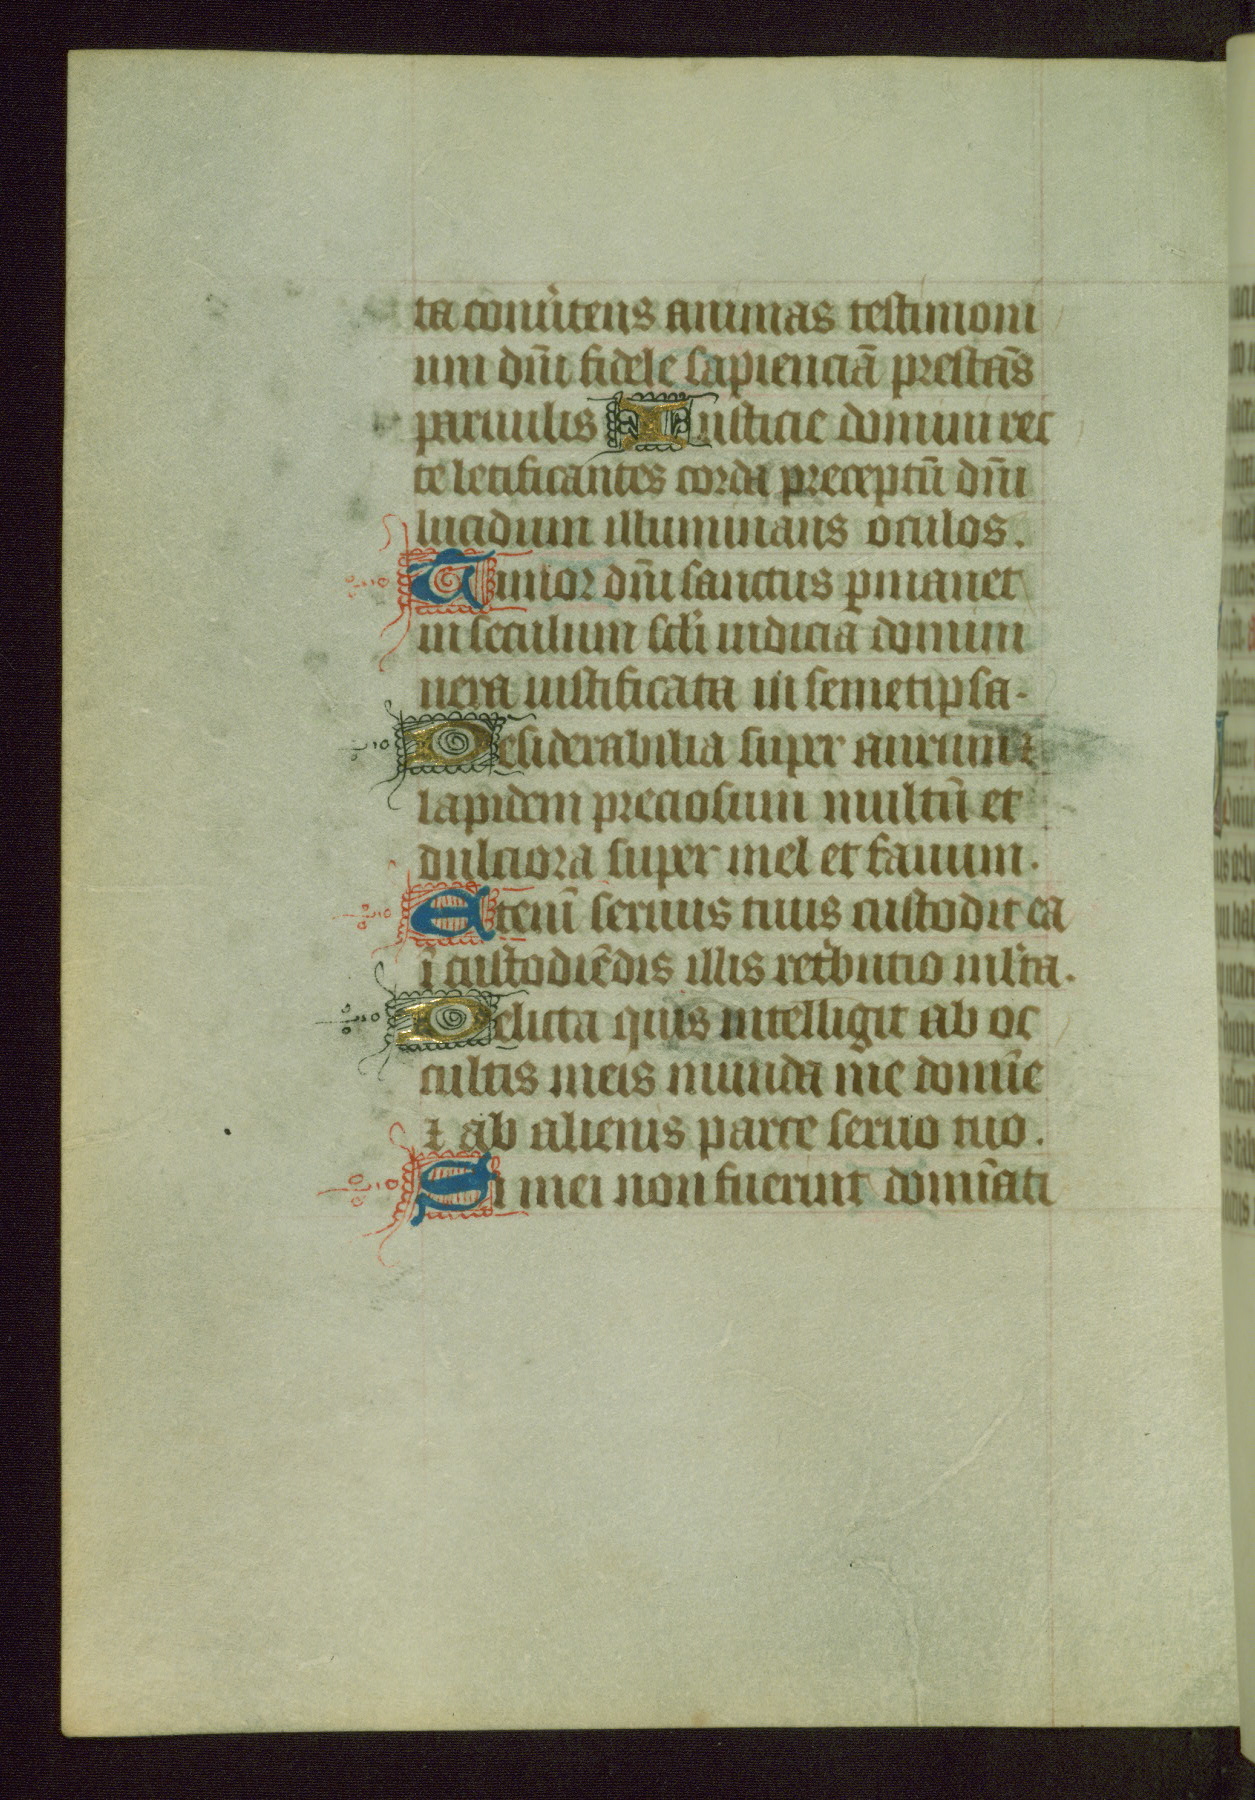 ta conu̾tens animas testimoni
um dn̄i fidele sapienciā prestās
paruulis Iusticie domini rec
te letificantes corda preceptū dn̄i
lucidum illuminans oculos.
Timor dn̄i sanctus ꝑmanet
in seculum scl̄i iudicia domini
uera iustificata in semetipsa.
Desiderabilia super aurum ⁊
lapidem preciosum multū et
dulciora super mel et fauum.
Etenī seruus tuus custodit ea
ī custodiēdis illis ret̾butio ml̾ta.
Delicta quis intelligit ab oc
cultis meis munda me domīe
⁊ ab alienis parce seruo tuo.
Si mei non fuerint domīati